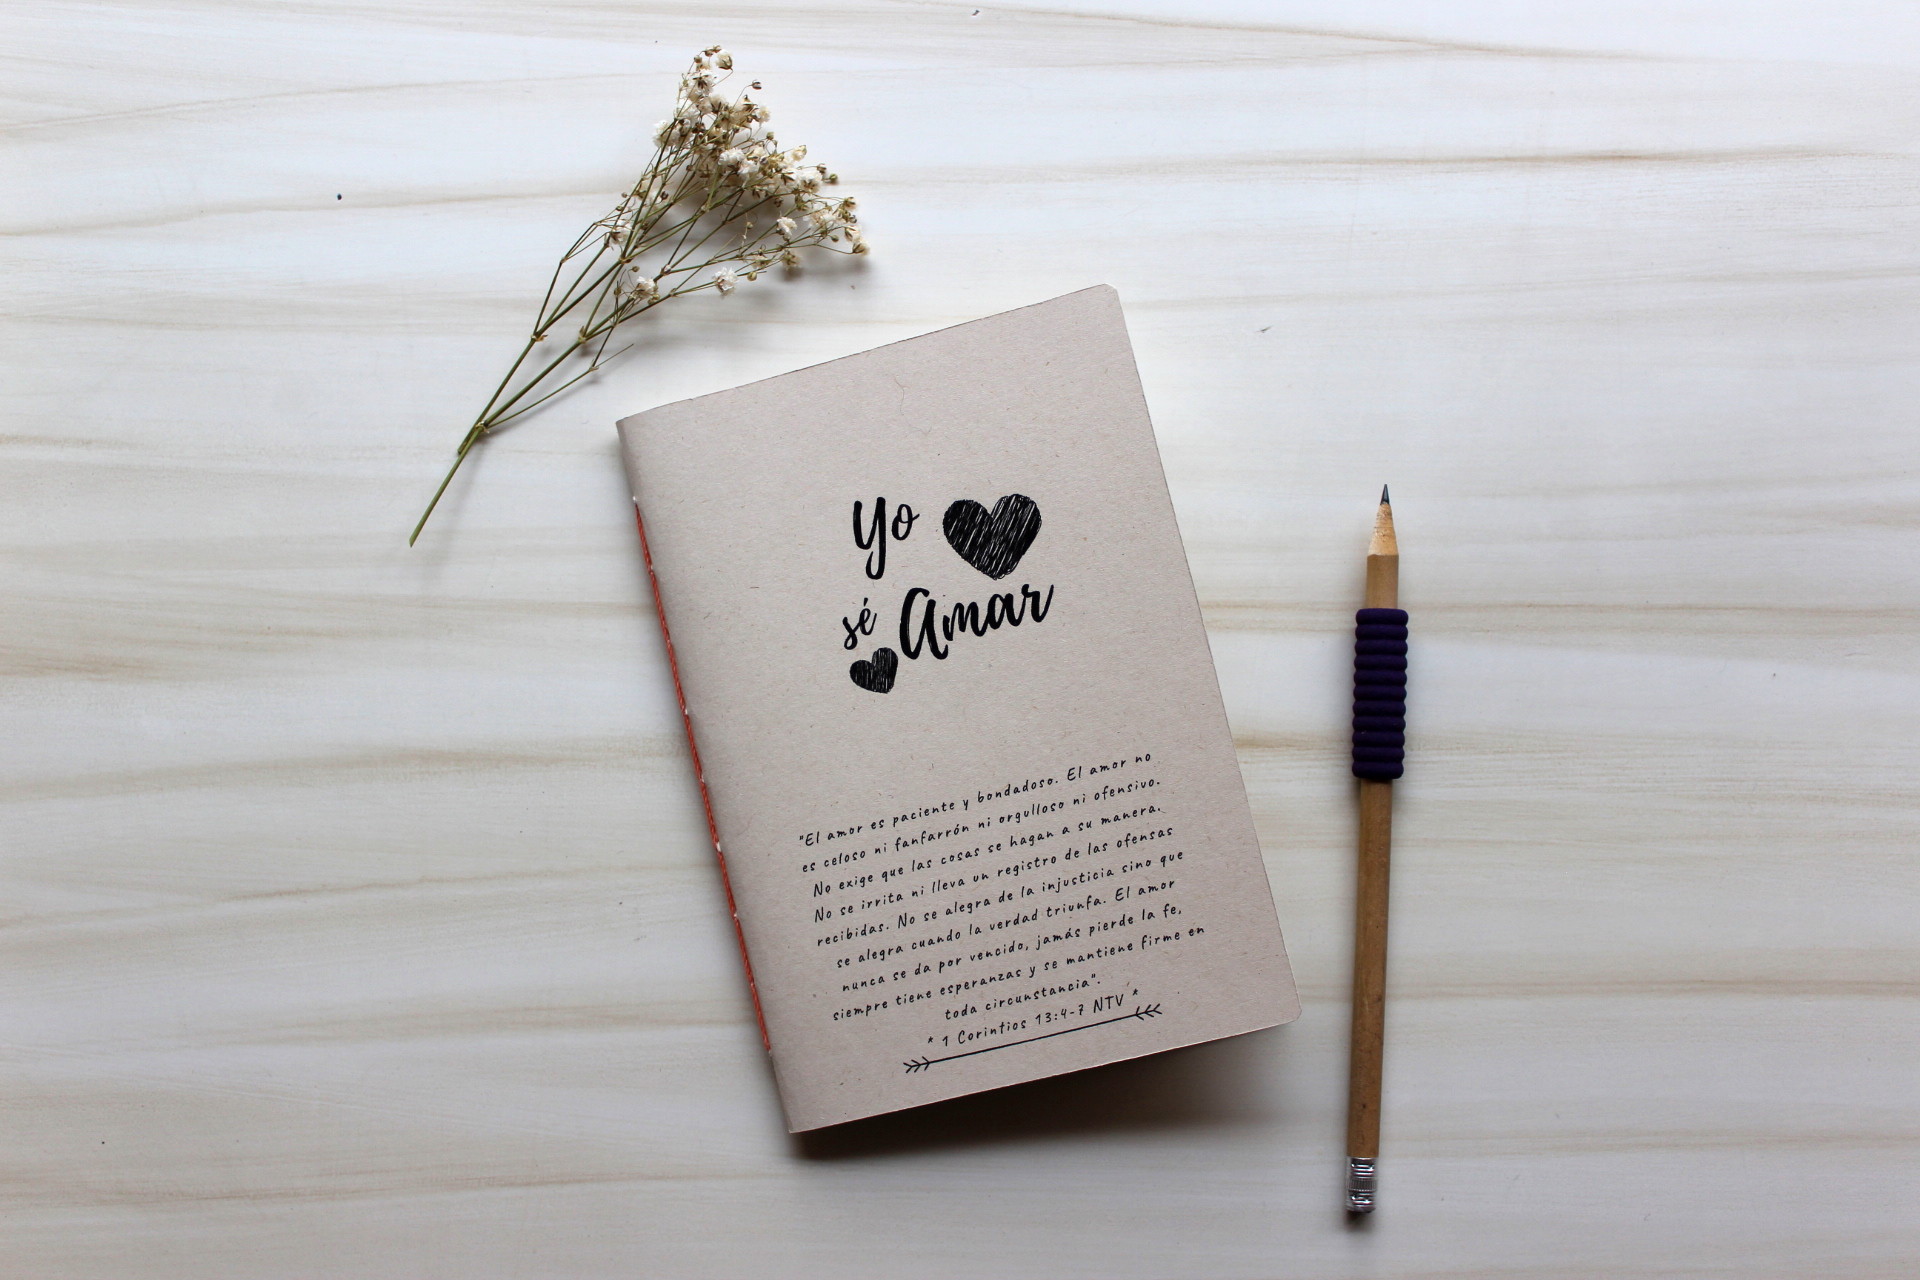 Yo
sé Amar
"El amor es paciente y bondadoso. El amor no
es celoso ni fanfarrón ni orgulloso ni ofensivo.
No exige que las cosas se hagan a su manera.
No se irrita ni lleva un registro de las ofensas
recibidas. No se alegra de la injusticia sino que
se alegra cuando la verdad triunfa. El amor
nunca se da por vencido, jamás pierde la fe,
siempre tiene esperanzas y se mantiene firme en
toda circunstancia".
* 1 Corintios 13:4-7 NTV *